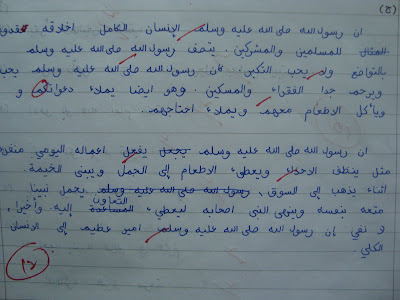 (ج)
ان رسول الله صلى الله عليه وسلم الإنسان الكامل اخلاقة قدوة
المثال للمسلمين والمشركين. يتصف رسول الله صلى الله عليه وسلم
بالتواضع ولا يحب التكبر. كان رسول الله صلى الله عليه وسلم يحب
ويرحم جدا الفقراء والمسكين. وهو ايضا يملاء دعواتهم و
ويأكل الاطعام معهم ويملاء احتاجهم.
ان رسول الله صلى الله عليه وسلم يجعل يفعل اعماله اليومي منفردا
مثل ينطق الاحمال ويعطيء الاطعام إلى الجمل ويبنى الخيمة
اثناء يذهب إلى السوق، رسول الله صلى الله عليه وسلم يحمل نبينا
متعه بنفسه وينهى النبى اصحابه ليعطيء المساعدة التعاون إليه وأخيرا،
لا نفي إن رسول الله صلى الله عليه وسلم امين عظيم إلى الانسان
الكلي.